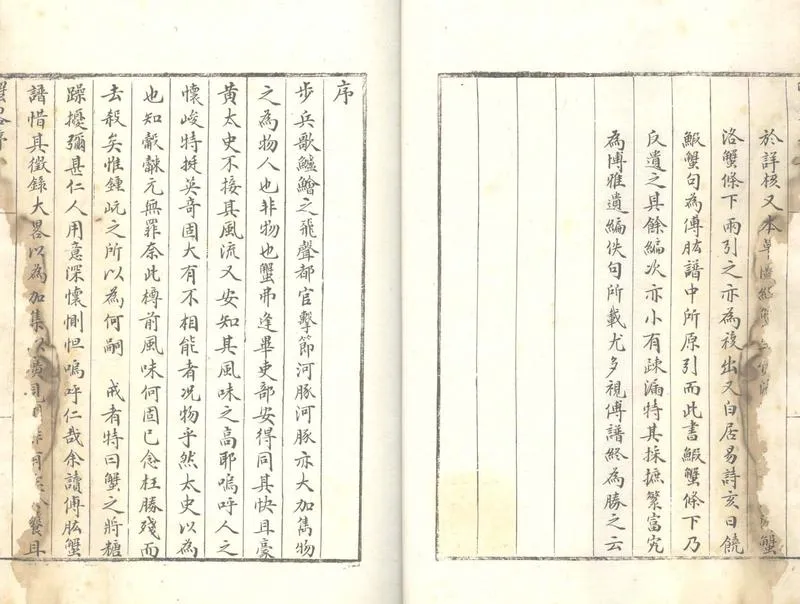 於詳核又本草蟹
洛蟹條下兩引之亦為複出又白居易詩亥日饒
鰕蟹句為傅肱譜中所原引而此書鰕蟹條下乃
反遺之其餘編次亦小有疎漏特其採摭繁富究
為博雅遺編佚句所載尤多視傅譜終為勝之云
序
步兵歌鱸鱠之飛聲都官擊節河豚河豚亦大加雋物
之為物人也非物也蟹弗逢畢吏部安得同其快耳豪
黃太史不接其風流又安知其風味之高耶嗚呼人之
懷峻特挺英奇固大有不相能者况物乎然太史以為
也知觳觫元無罪奈此樽前風味何固已念枉勝殘而
去殺矣惟鍾岏之所以為何嗣 戒者特曰蟹之將糖
躁擾彌甚仁人用意深懷惻怛嗚呼仁哉余讀傅肱蟹
譜惜其徵錄大畧以為加集以饕耳